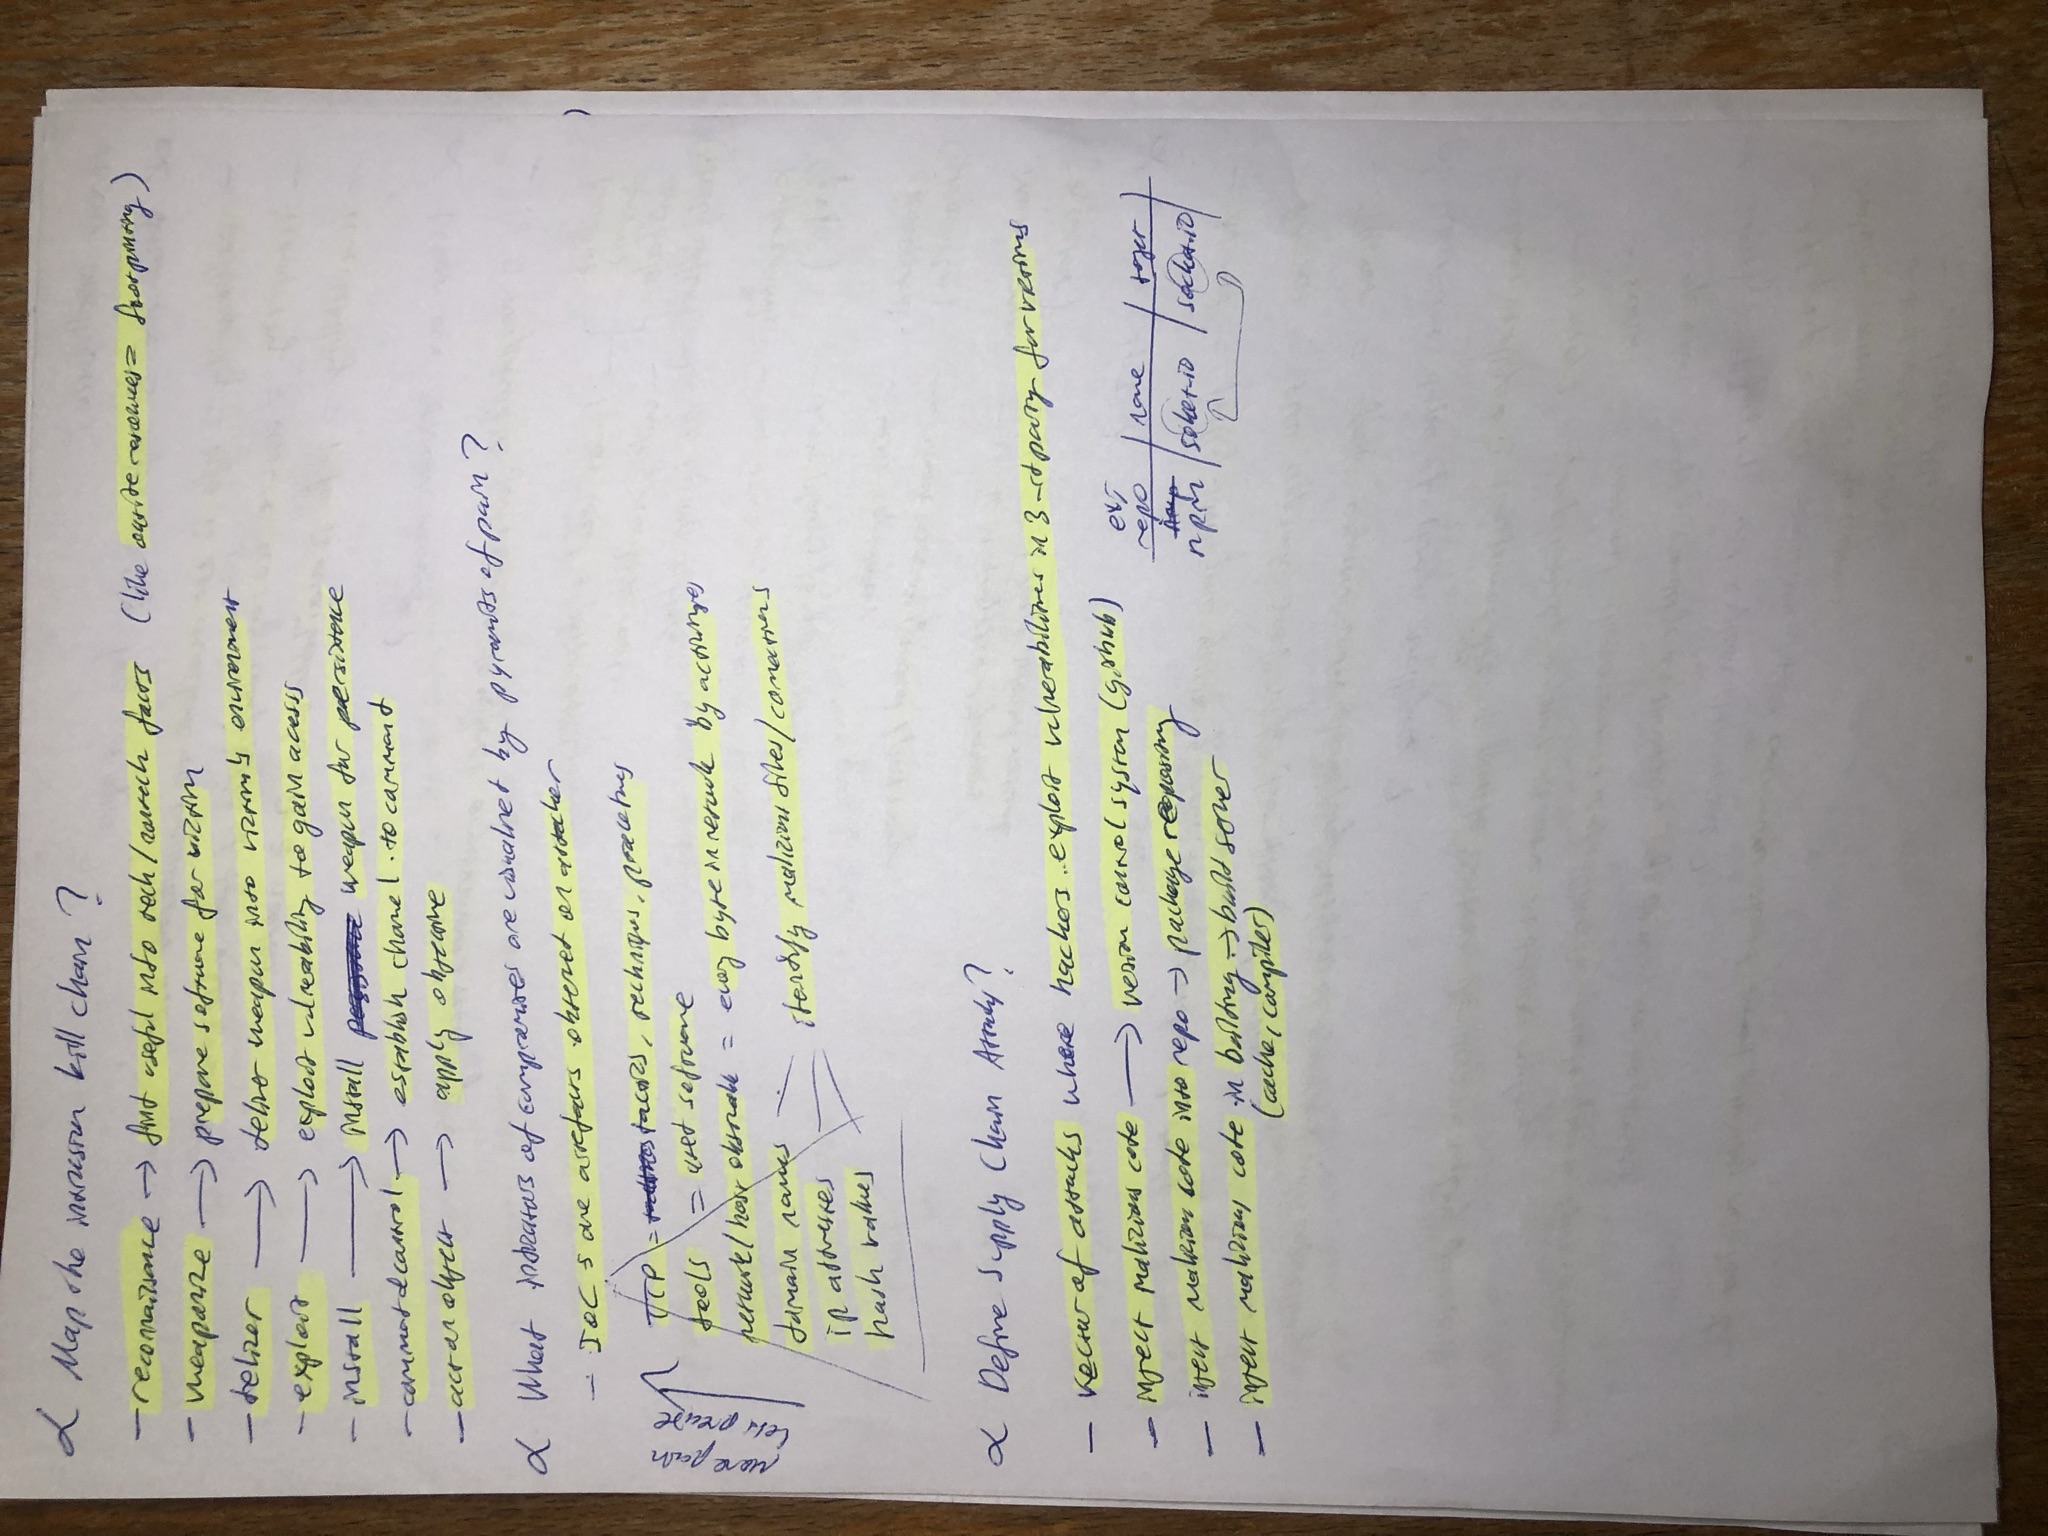 α Map the intrusion kill chain?
- reconnaissance → find useful info tech/search facts (like outside resources = footprinting)
- weaponize → prepare software for victim
- deliver → deliver weapon into victims environment
- exploit → exploit vulnerability to gain access
- install → install weapon for persistence
- command & control → establish channel to command
- act on object → apply objective
α What indicators of compromises are visualized by pyramids of pain?
- IOC's are artefacts observed on attacker
TTP = tactics, techniques, procedures
tools = used software
network/host observable = every byte in network by activity
domain names
ip addresses
hash values
identify malicious files/connections
more pain
less precise
α Define Supply Chain Attack?
- vector of attacks where hackers exploit vulnerabilities in 3-rd party for victims
- inject malicious code → version control system (github)
- inject malicious code into repo → package repository
- inject malicious code in building → build server
(cache, compiler)
ex;
repo | name | target
npm | soket-io | socket-io